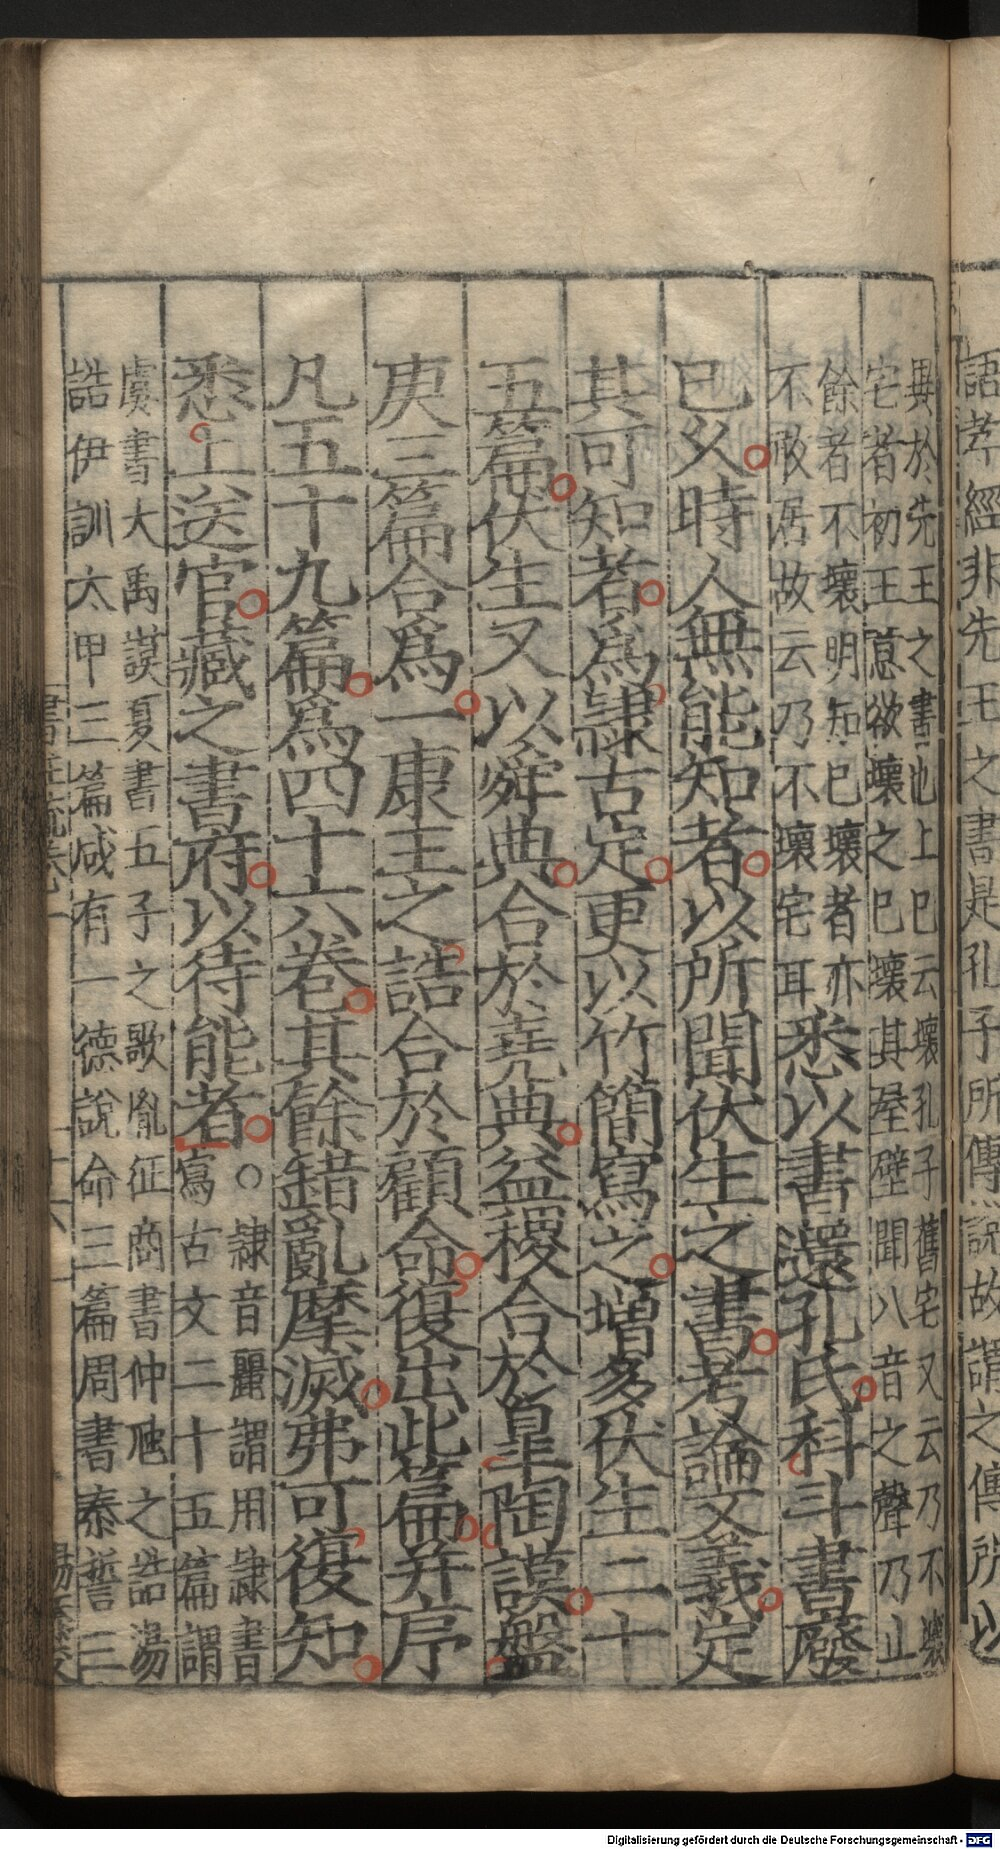 語孝經非先王之書是孔子所傳說故謂之傳所以
異於先王之書也上巳云壞孔子舊宅又云乃不壞
宅者初王意欲壞之巳壞其屋壁聞八音之聲乃止
餘者不壞明知巳壞者亦
不敢居故云乃不壞宅耳
悉以書還孔氏科斗書廢
巳久時人無能知者以所聞伏生之書考論文義定
其可知者爲隷古定更以竹簡寫之增多伏生二十
五篇伏生又以舜典合於堯典益稷合於皐陶謨盤
庚三篇合爲一康王之誥合於顧命復出此篇并序
凡五十九篇爲四十六卷其餘錯亂摩滅弗可復知
悉上送官藏之書府以待能者
○隷音麗謂用隷書
寫古文二十五篇謂
虞書大禹謨夏書五子之歌胤征商書仲虺之誥湯
誥伊訓太甲三篇咸有一德說命三篇周書泰誓三
Digitalisierung gefördert durch die Deutsche Forschungsgemeinschaft - DFG